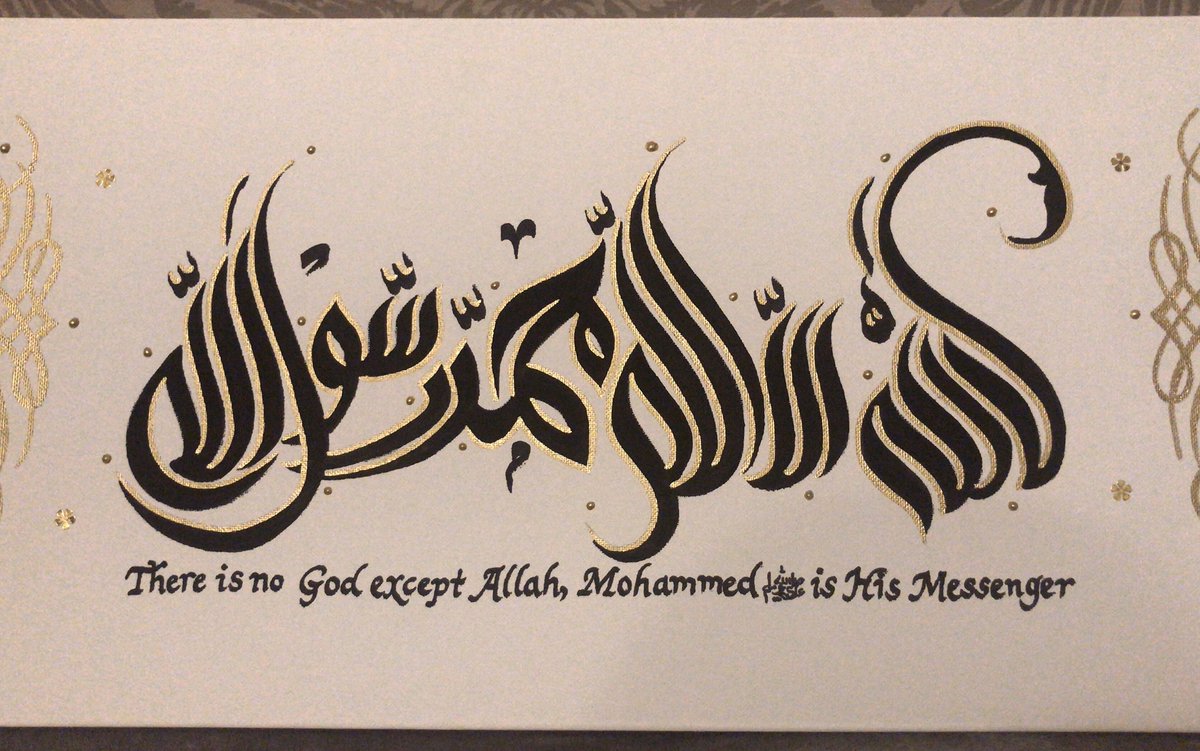 لا إله إلا الله محمد رسول الله
There is no God except Allah, Mohammed ﷺ is His Messenger